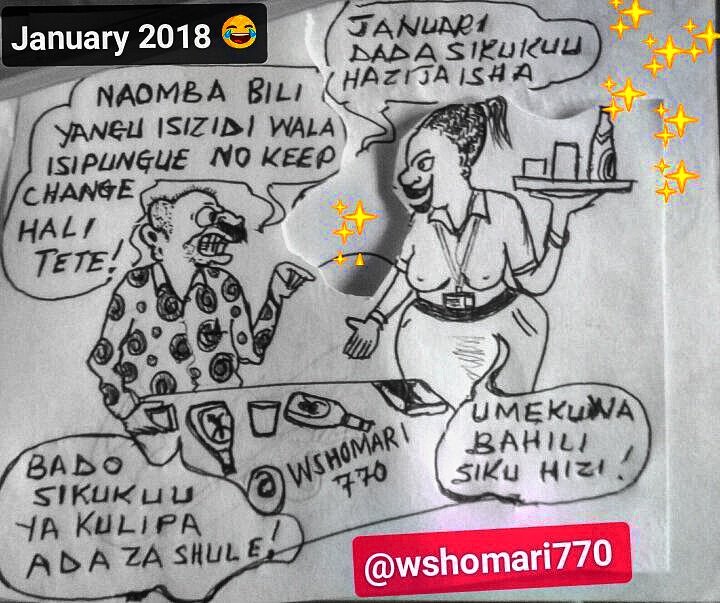 January 2018 😂
JANUARI
DADA SIKUKUU
HAZIJAISHA
NAOMBA BILI
YANGU ISIZIDI WALA
ISIPUNGUE NO KEEP
CHANGE
HALI
TETE!
UMEKUWA
BAHILI
SIKU HIZI!
BADO
SIKUKUU
YA KULIPA
ADA ZA SHULE!
@ WSHOMARI
770
@wshomari770